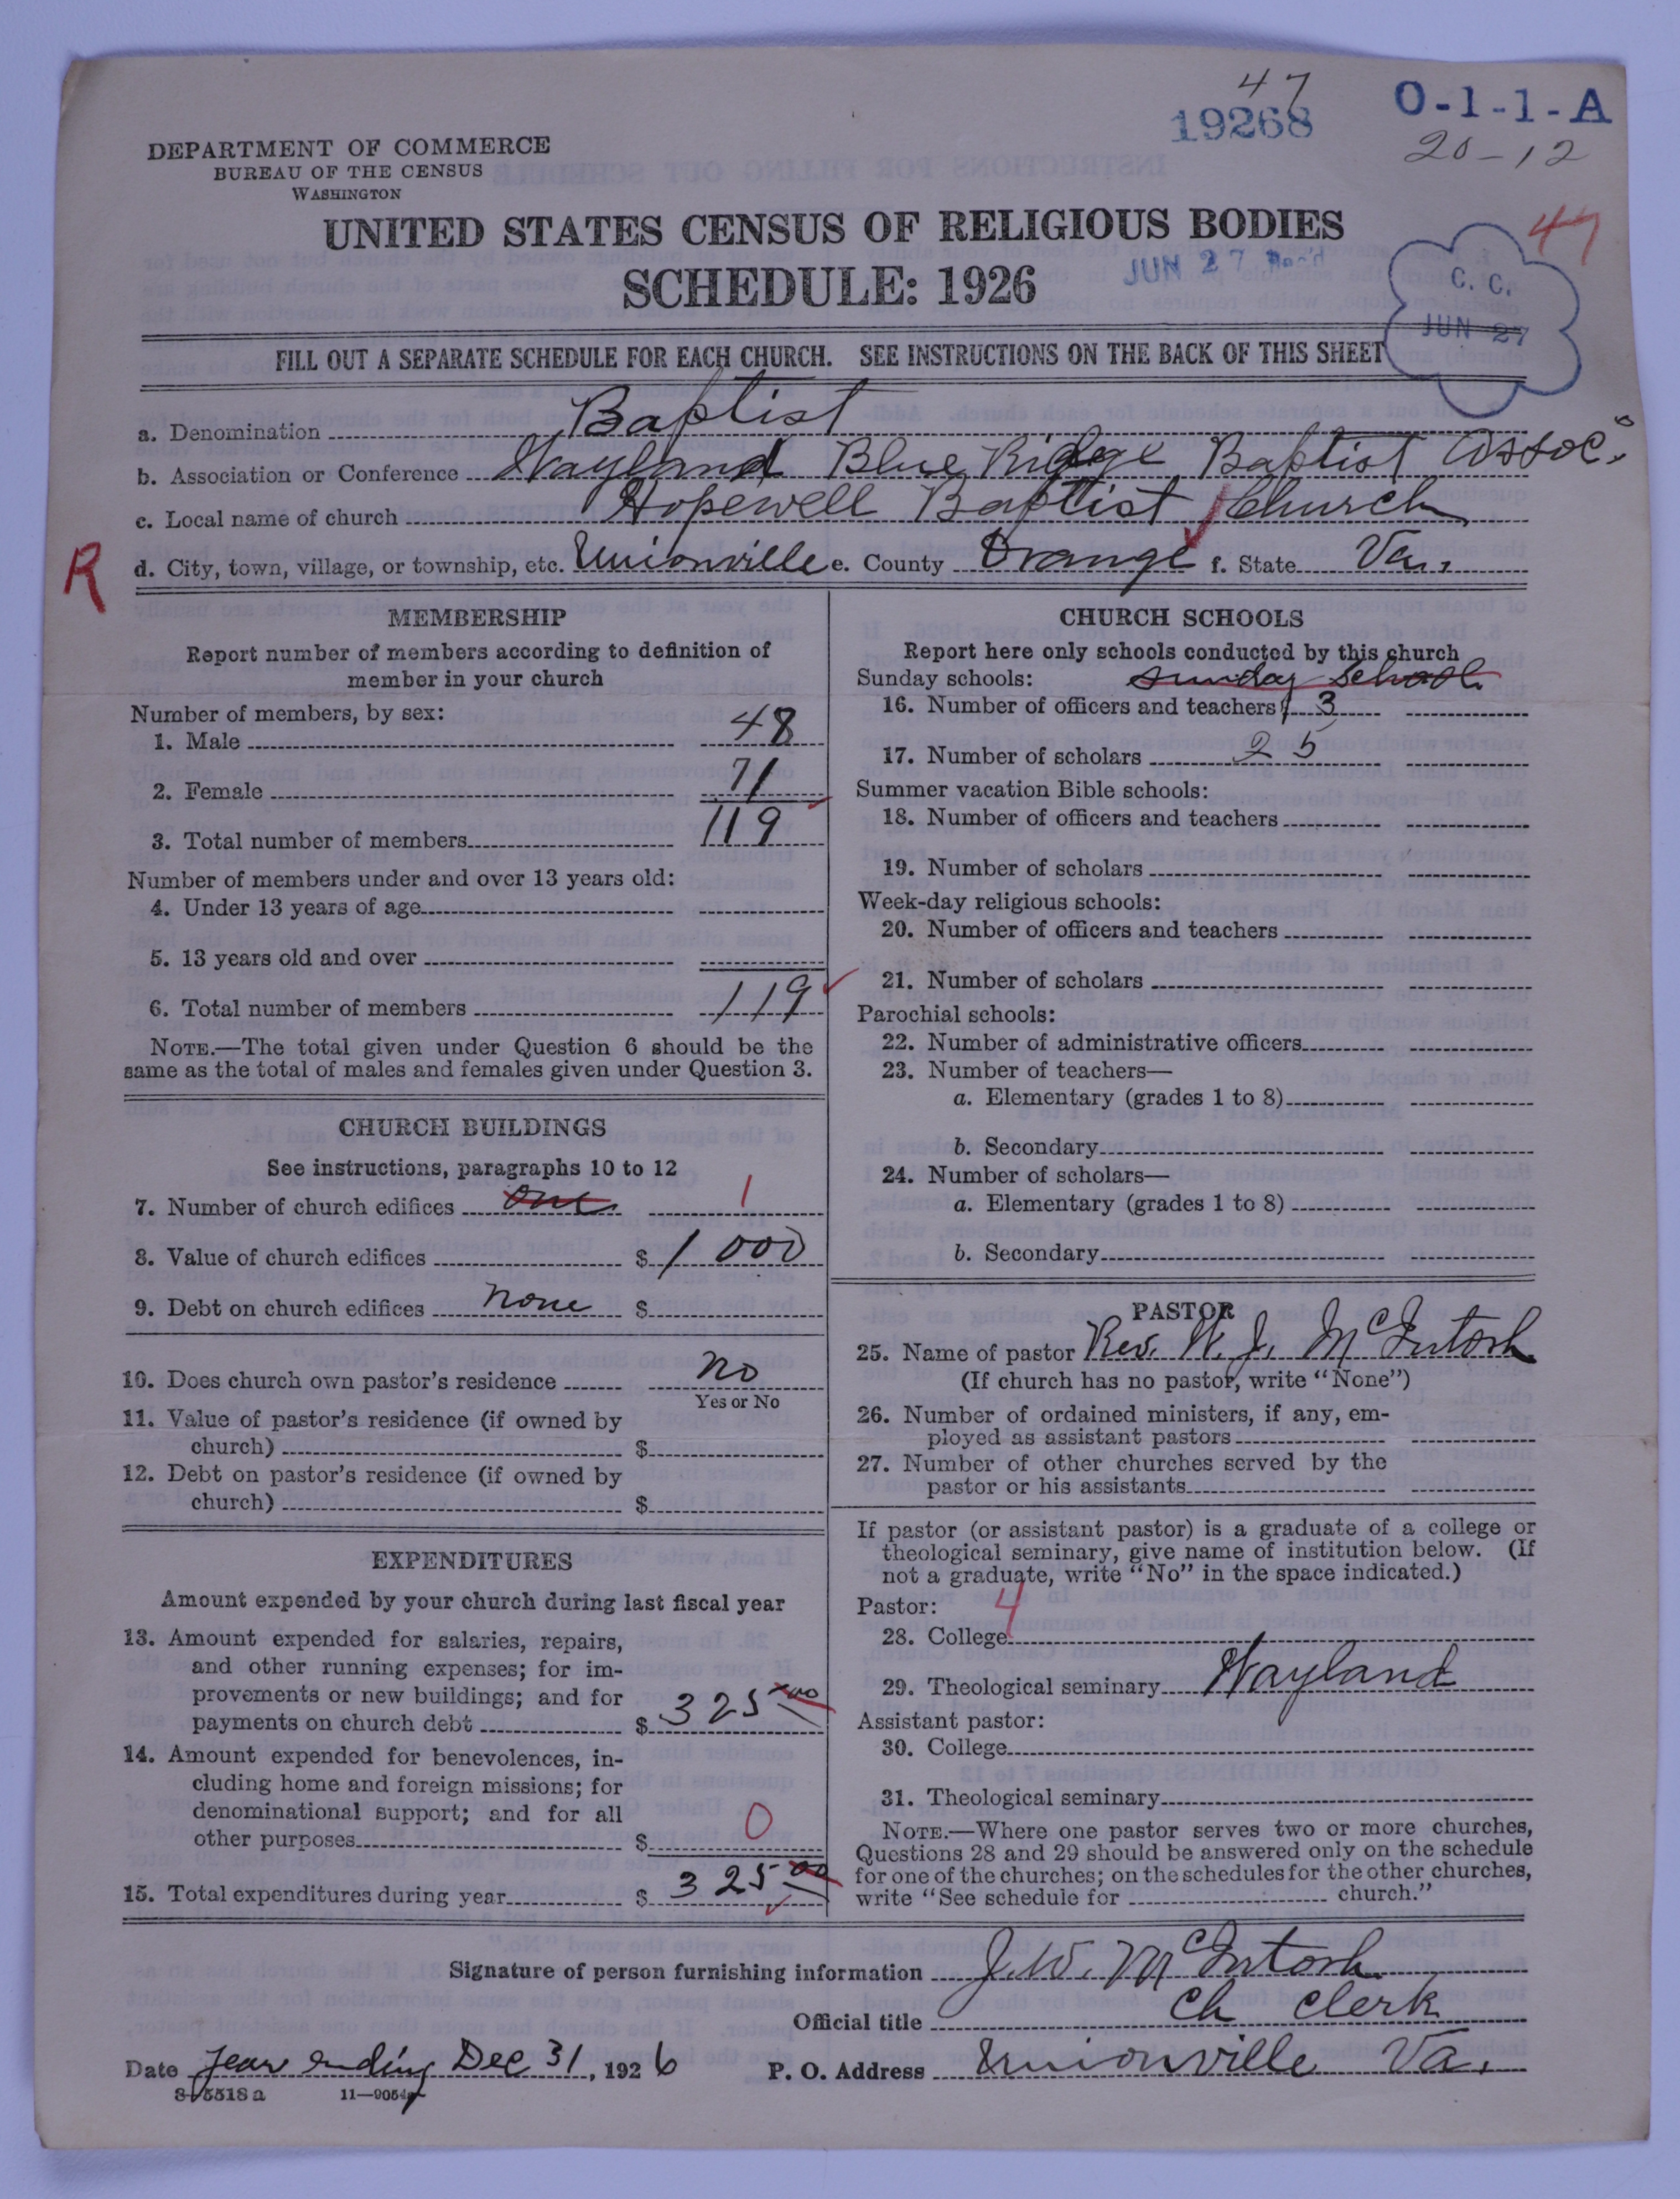 47
19268
O-1-1-A
20-12
DEPARTMENT OF COMMERCE
BUREAU OF THE CENSUS
WASHINGTON
UNITED STATES CENSUS OF RELIGIOUS BODIES
47
JUN 27 Rec'd
SCHEDULE: 1926
C. C.
JUN 27
FILL OUT A SEPARATE SCHEDULE FOR EACH CHURCH. SEE INSTRUCTIONS ON THE BACK OF THIS SHEET
a. Denomination Baptist
b. Association or Conference Wayland Blue Ridge Baptist Assoc.
c. Local name of church Hopewell Baptist Church
R
d. City, town, village, or township, etc. Unionville e. County Orange f. State Va.
MEMBERSHIP
Report number of members according to definition of
member in your church
Number of members, by sex:
1. Male 48
2. Female 71
3. Total number of members 119
Number of members under and over 13 years old:
4. Under 13 years of age
5. 13 years old and over
6. Total number of members 119
NOTE.—The total given under Question 6 should be the
same as the total of males and females given under Question 3.
CHURCH BUILDINGS
See instructions, paragraphs 10 to 12
7. Number of church edifices one 1
8. Value of church edifices $ 1000
9. Debt on church edifices none $
10. Does church own pastor's residence no
Yes or No
11. Value of pastor's residence (if owned by
church) $
12. Debt on pastor's residence (if owned by
church) $
EXPENDITURES
Amount expended by your church during last fiscal year
13. Amount expended for salaries, repairs,
and other running expenses; for im-
provements or new buildings; and for
payments on church debt $ 325 00
14. Amount expended for benevolences, in-
cluding home and foreign missions; for
denominational support; and for all
other purposes $ 0
15. Total expenditures during year $ 325 00
CHURCH SCHOOLS
Report here only schools conducted by this church
Sunday schools: Sunday School
16. Number of officers and teachers 3
17. Number of scholars 25
Summer vacation Bible schools:
18. Number of officers and teachers
19. Number of scholars
Week-day religious schools:
20. Number of officers and teachers
21. Number of scholars
Parochial schools:
22. Number of administrative officers
23. Number of teachers—
a. Elementary (grades 1 to 8)
b. Secondary
24. Number of scholars—
a. Elementary (grades 1 to 8)
b. Secondary
PASTOR
25. Name of pastor Rev. W. J. McIntosh
(If church has no pastor, write "None")
26. Number of ordained ministers, if any, em-
ployed as assistant pastors
27. Number of other churches served by the
pastor or his assistants
If pastor (or assistant pastor) is a graduate of a college or
theological seminary, give name of institution below. (If
not a graduate, write "No" in the space indicated.)
Pastor: 4
28. College
29. Theological seminary Wayland
Assistant pastor:
30. College
31. Theological seminary
NOTE.—Where one pastor serves two or more churches,
Questions 28 and 29 should be answered only on the schedule
for one of the churches; on the schedules for the other churches,
write "See schedule for church."
Signature of person furnishing information J. W. McIntosh
Official title Ch Clerk
Date Year ending Dec 31, 1926 P. O. Address Unionville Va.
8-5518a 11-9054